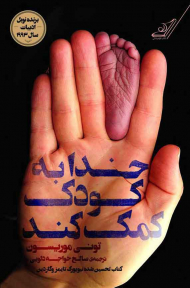 برنده نوبل
ادبیات
سال ۱۹۹۳
خدا به
کودک
کمک کند
تونی موریسون
ترجمه‌ی صالح خواجه دلویی
کتاب تحسین شده نیویورک تایمز و گاردین